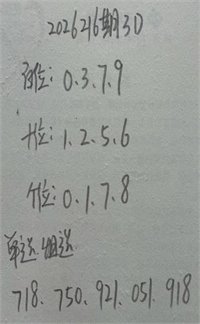 2026216期3D
百位：0.3.7.9
十位：1.2.5.6
个位：0.1.7.8
单选.组选
718.750.921.051.918